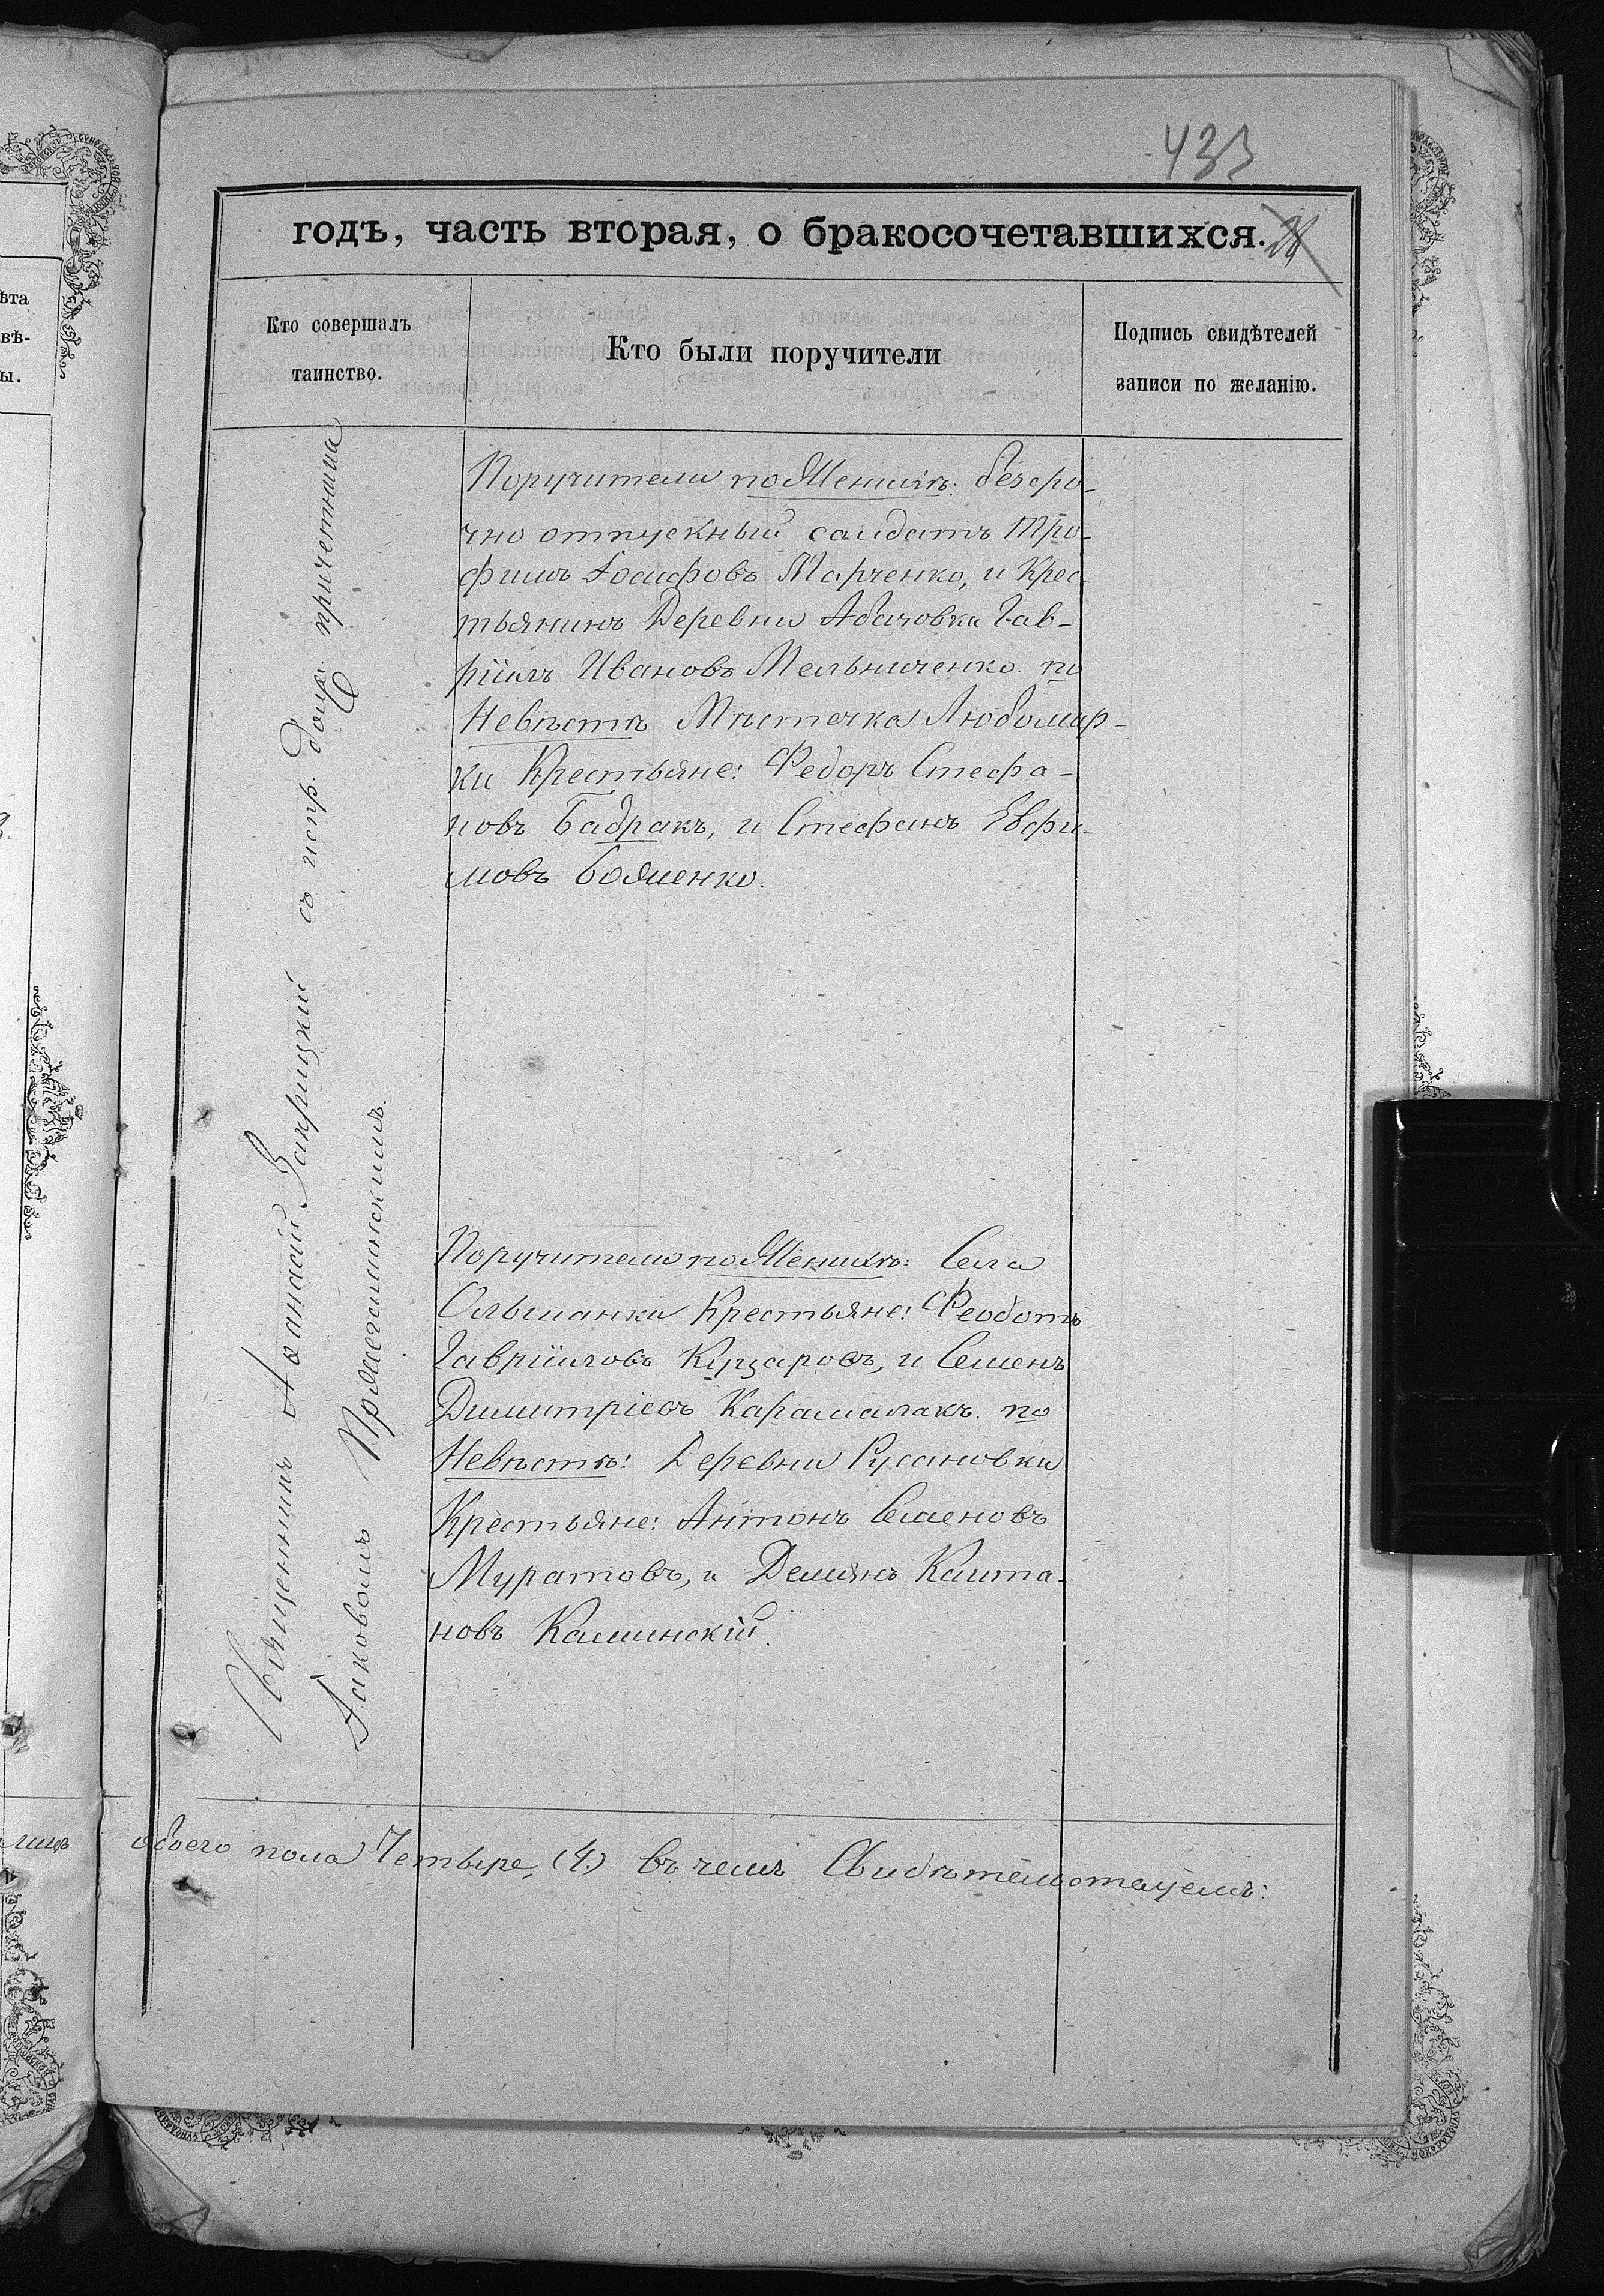 433
годъ, часть вторая, о бракосочетавшихся.
Кто совершалъ
таинство.
Кто были поручители
Подпись свидѣтелей
записи по желанію.
Священникъ Аѳанасій Закрицкій съ испр. долж. причетника
Іаковомъ Пряжегалинскимъ.
Поручители по Женихѣ: безсро-
чно отпускный салдатъ Тро-
фимъ Іосифовъ Марченко, и Крес-
тьянинъ Деревни Абазовка Гав-
ріилъ Ивановъ Мельниченко. по
Невѣстѣ Мѣстечка Любомир-
ки Крестьяне: Федоръ Стефа-
новъ Бадракъ, и Стефанъ Евфи-
мовъ Боженко.
Поручители по Женихѣ: Села
Ольшанки Крестьяне: Феодотъ
Гавріиловъ Куцаровъ, и Семенъ
Димитріевъ Карамалакъ. по
Невѣстѣ: Деревни Русановки
Крестьяне: Антонъ Семеновъ
Муратовъ, и Демянъ Кашта-
новъ Каминскій.
лицъ обоего пола Четыре, (4.) въ чемъ Свидѣтельствуемъ:
ѣта
вѣ-
ы.